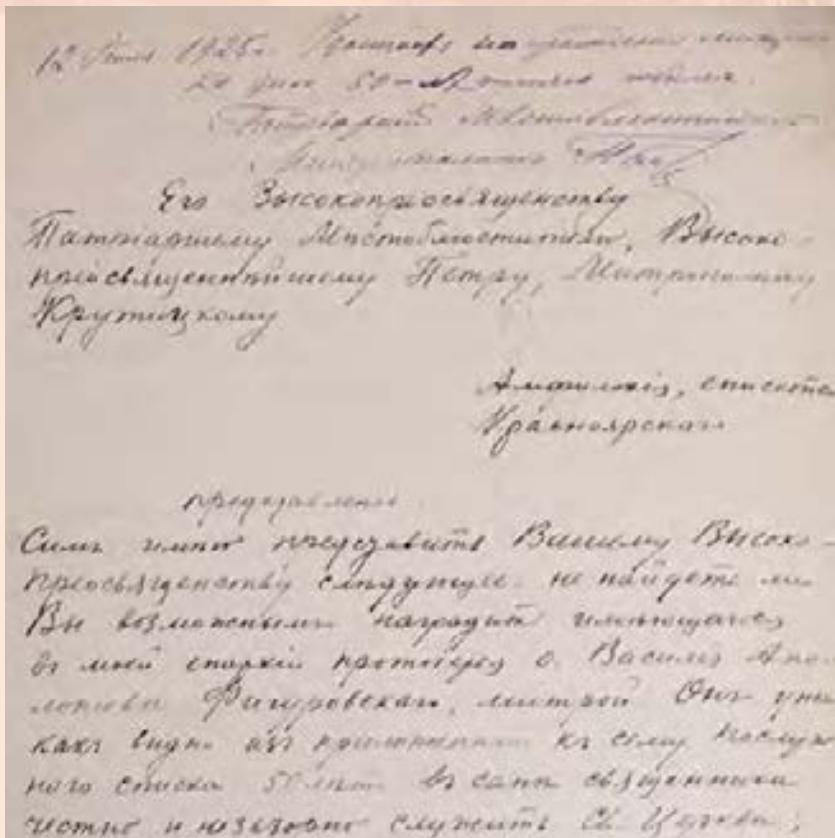 12 1925 г.
дня 50
Патриарший Местоблюститель
Митрополит
Его Высокопреосвященству
Патриаршему Мѣстоблюстителю, Высоко-
преосвященнѣйшему Петру, Митрополиту
Крутицкому
Амфилохія, епископа
Красноярскаго
представленіе.
Симъ имѣю представить Вашему Высоко-
преосвященству слѣдующее: не найдете ли
Вы возможнымъ наградить имѣющагося
въ моей епархіи протоіерея о. Василія Апо-
лонова Фигуровскаго, митрой. Онъ
какъ видно изъ къ сему послуж-
ного списка 50 лѣтъ въ санѣ священника
честно и служитъ Св. Церкви;